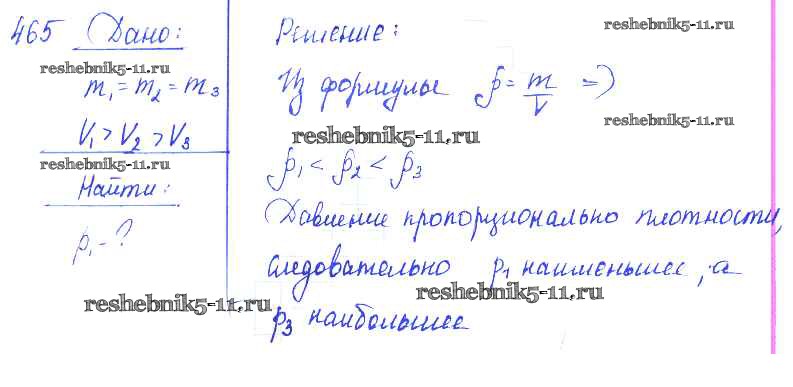 465 Дано:
reshebnik5-11.ru
m₁ = m₂ = m₃
V₁ > V₂ > V₃
reshebnik5-11.ru
Найти:
p₁ - ?
reshebnik5-11.ru
Решение:
reshebnik5-11.ru
Из формулы ρ = m/V =>
reshebnik5-11.ru
reshebnik5-11.ru
ρ₁ < ρ₂ < ρ₃
Давление пропорционально плотности,
следовательно p₁ наименьшее, а
reshebnik5-11.ru
p₃ наибольшее